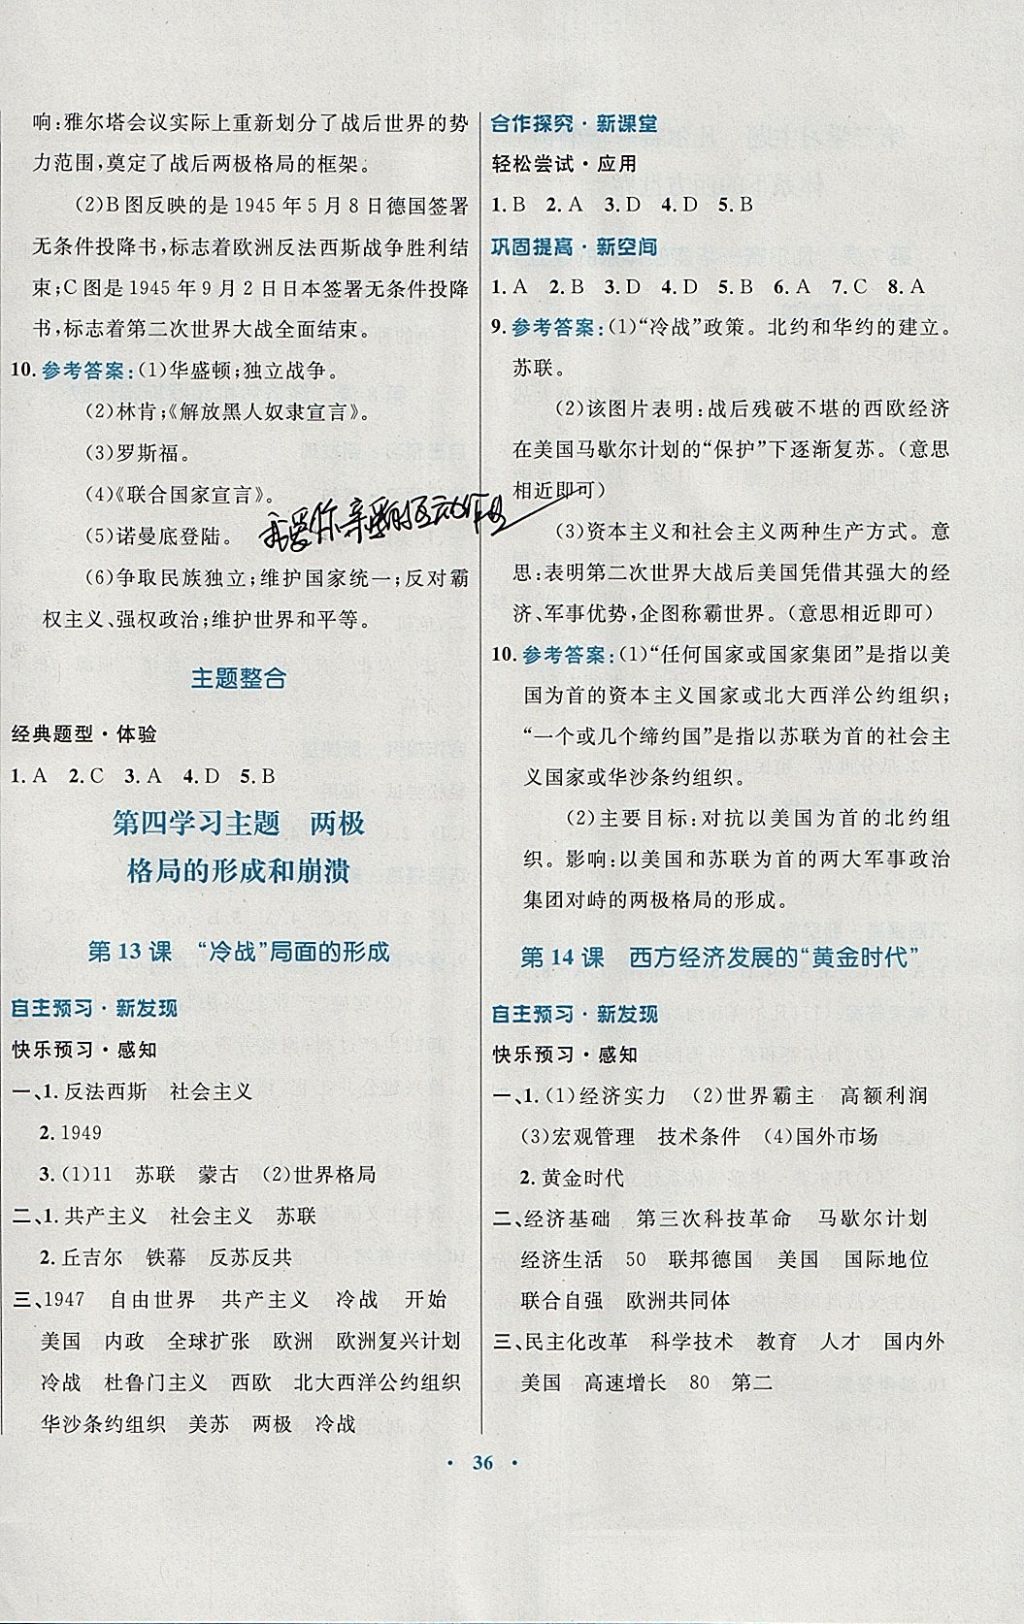 响:雅尔塔会议实际上重新划分了战后世界的势
力范围,奠定了战后两极格局的框架。
(2)B图反映的是1945年5月8日德国签署
无条件投降书,标志着欧洲反法西斯战争胜利结
束;C图是1945年9月2日日本签署无条件投降
书,标志着第二次世界大战全面结束。
10.参考答案:(1)华盛顿;独立战争。
(2)林肯;《解放黑人奴隶宣言》。
(3)罗斯福。
(4)《联合国家宣言》。
(5)诺曼底登陆。
(6)争取民族独立;维护国家统一;反对霸
权主义、强权政治;维护世界和平等。
主题整合
经典题型·体验
1.A 2.C 3.A 4.D 5.B
第四学习主题 两极
格局的形成和崩溃
第13课 “冷战”局面的形成
自主预习·新发现
快乐预习·感知
一、1.反法西斯 社会主义
2.1949
3.(1)11 苏联 蒙古 (2)世界格局
二、1.共产主义 社会主义 苏联
2.丘吉尔 铁幕 反苏反共
三、1947 自由世界 共产主义 冷战 开始
美国 内政 全球扩张 欧洲 欧洲复兴计划
冷战 杜鲁门主义 西欧 北大西洋公约组织
华沙条约组织 美苏 两极 冷战
合作探究·新课堂
轻松尝试·应用
1.B 2.A 3.D 4.D 5.B
巩固提高·新空间
1.A 2.B 3.D 4.D 5.B 6.A 7.C 8.A
9.参考答案:(1)“冷战”政策。北约和华约的建立。
苏联。
(2)该图片表明:战后残破不堪的西欧经济
在美国马歇尔计划的“保护”下逐渐复苏。(意思
相近即可)
(3)资本主义和社会主义两种生产方式。意
思:表明第二次世界大战后美国凭借其强大的经
济、军事优势,企图称霸世界。(意思相近即可)
10.参考答案:(1)“任何国家或国家集团”是指以美
国为首的资本主义国家或北大西洋公约组织;
“一个或几个缔约国”是指以苏联为首的社会主
义国家或华沙条约组织。
(2)主要目标:对抗以美国为首的北约组
织。影响:以美国和苏联为首的两大军事政治
集团对峙的两极格局的形成。
第14课 西方经济发展的“黄金时代”
自主预习·新发现
快乐预习·感知
一、1.(1)经济实力 (2)世界霸主 高额利润
(3)宏观管理 技术条件 (4)国外市场
2.黄金时代
二、经济基础 第三次科技革命 马歇尔计划
经济生活 50 联邦德国 美国 国际地位
联合自强 欧洲共同体
三、民主化改革 科学技术 教育 人才 国内外
美国 高速增长 80 第二
·36·